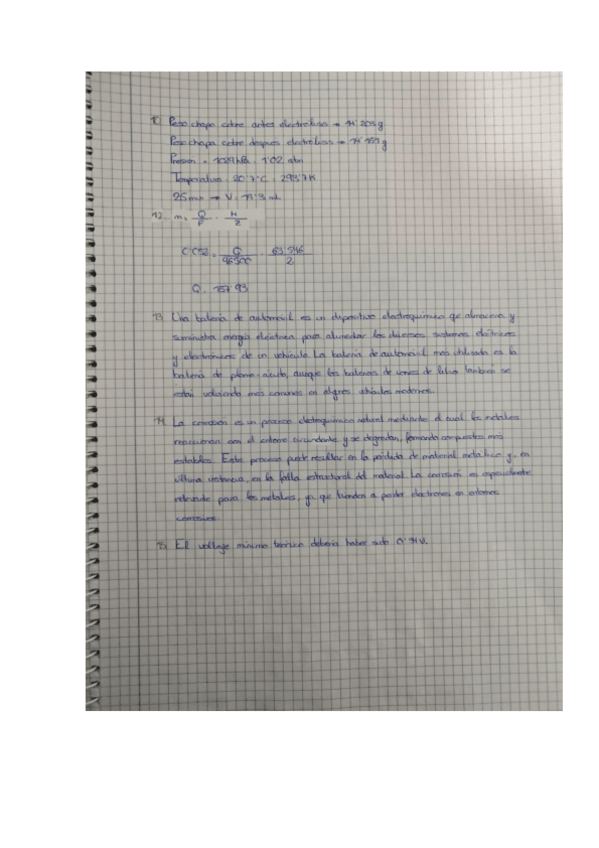 10 Peso chapa cobre antes electrolisis → 14'203 g
Peso chapa cobre despues electrolisis → 14'151 g
Presion = hPa = 1'02 atm
Temperatura = 20'7°C = 293'7 K
25 min → V = mL
12. m = Q/F · M/Z
0'052 = Q/96500 · 63'546/2
Q = 157'93
13. Una batería de automovil es un dispositivo electroquímico que almacena y
suministra energía eléctrica para alimentar los diversos sistemas eléctricos
y electrónicos de un vehículo. La batería de automóvil más utilizada es la
batería de plomo-ácido, aunque las baterías de iones de litio también se
están volviendo más comunes en algunos vehículos modernos.
14. La corrosión es un proceso electroquímico natural mediante el cual los metales
reaccionan con el entorno circundante y se degradan, formando compuestos más
estables. Este proceso puede resultar en la pérdida de material metálico y, en
última instancia, en la falla estructural del material. La corrosión es especialmente
relevante para los metales, ya que tienden a perder electrones en entornos
corrosivos.
15. El voltaje mínimo teórico debería haber sido 0'34V.